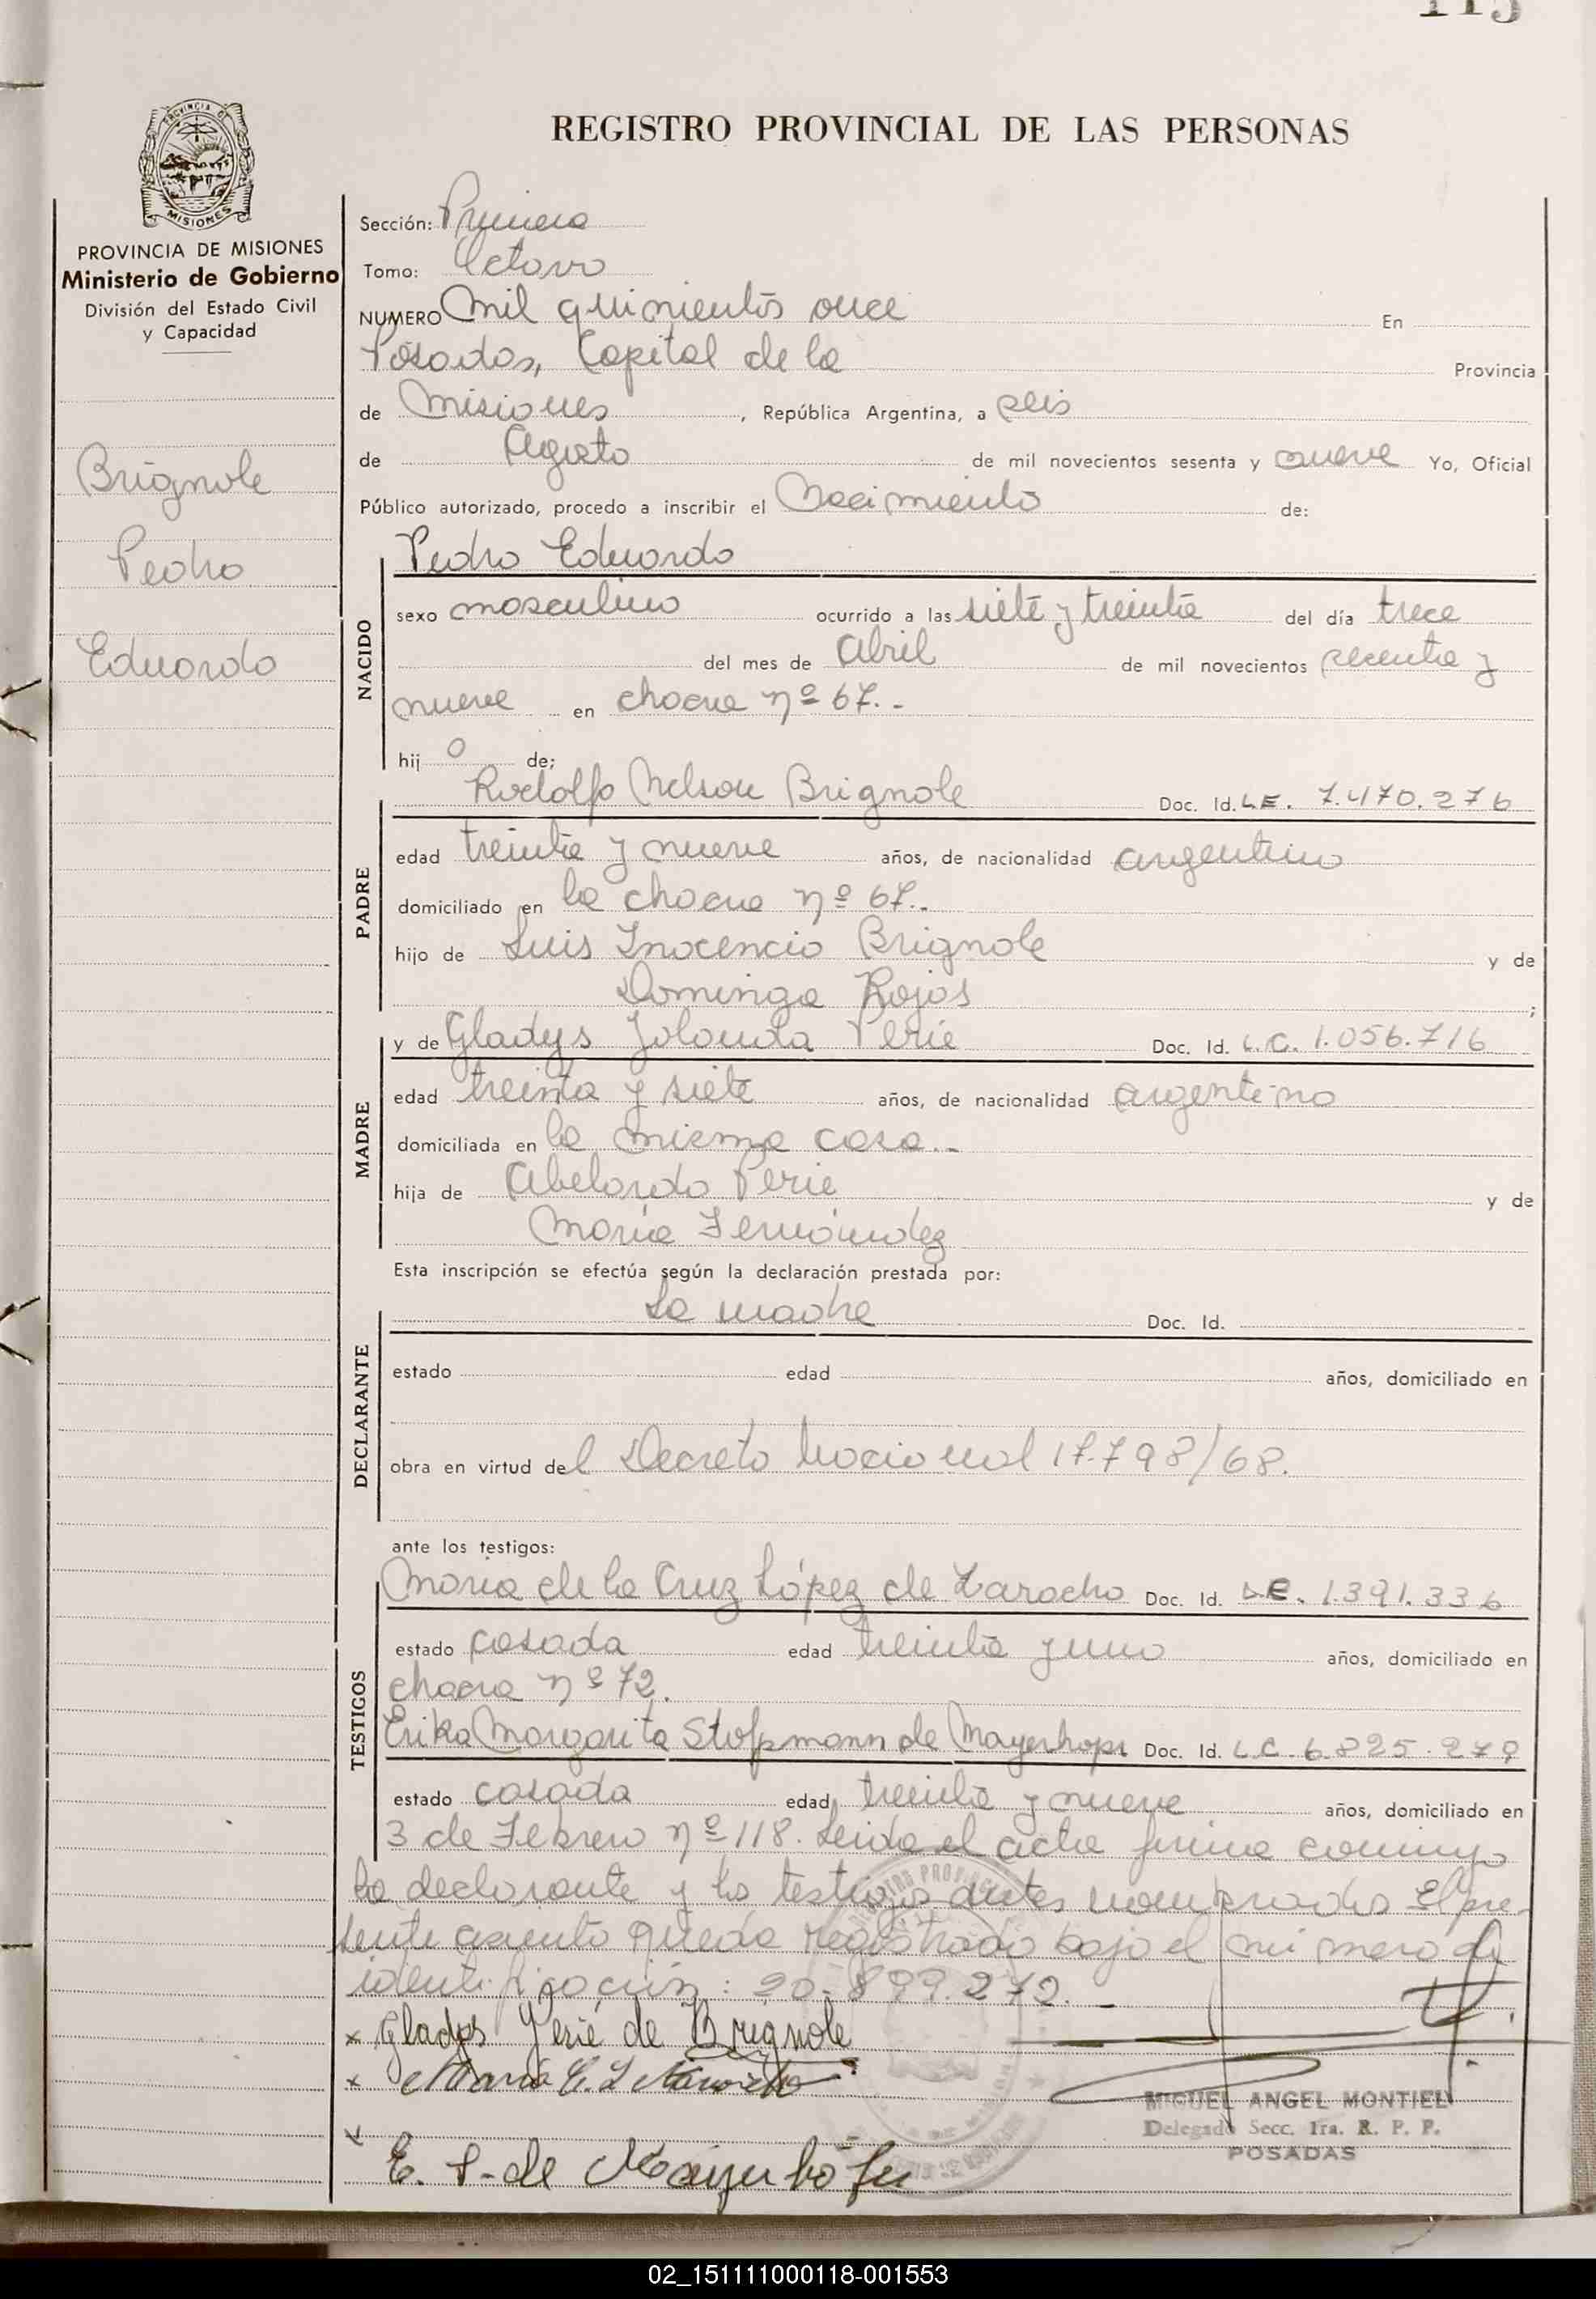 REGISTRO PROVINCIAL DE LAS PERSONAS
PROVINCIA DE MISIONES
Ministerio de Gobierno
División del Estado Civil
y Capacidad
Brignole
Pedro
Eduardo
Sección: Primera
Tomo: Octavo
NUMERO mil quinientos once En
Posadas, Capital de la Provincia
de Misiones, República Argentina, a seis
de Agosto de mil novecientos sesenta y nueve Yo, Oficial
Público autorizado, procedo a inscribir el Nacimiento de:
NACIDO
Pedro Eduardo
sexo masculino ocurrido a las siete y treinta del día trece
del mes de Abril de mil novecientos sesenta y
nueve en chacra nº 67.-
hijo de;
PADRE
Rodolfo Nelson Brignole Doc. Id. L.E. 7.470.276
edad treinta y nueve años, de nacionalidad argentino
domiciliado en la chacra nº 67.-
hijo de Luis Inocencio Brignole y de
Dominga Rojas ;
MADRE
y de Gladys Yolanda Perie Doc. Id. L.C. 1.056.716
edad treinta y siete años, de nacionalidad argentina
domiciliada en la misma casa.-
hija de Abelardo Perie y de
María Fernández
Esta inscripción se efectúa según la declaración prestada por:
DECLARANTE
La madre Doc. Id.
estado edad años, domiciliado en
obra en virtud del Decreto Nacional 17.798/68.
ante los testigos:
TESTIGOS
María de la Cruz López de Doc. Id. L.E. 1.391.336
estado casada edad treinta y uno años, domiciliado en
chacra nº 72.
Erika Margarita de Doc. Id. L.C. 6.825.279
estado casada edad treinta y nueve años, domiciliado en
3 de Febrero nº 118. Leida el acta firma conmigo
la declarante y los testigos antes nombrados El pre-
sente asiento queda registrado bajo el número de
identificación: 20.899.272.-
x Gladys Perié de Brignole
x María C. L
x
E. S. de Mayerhofer
MIGUEL ANGEL MONTIEL
Delegado Secc. 1ra. R. P. P.
POSADAS
02_151111000118-001553